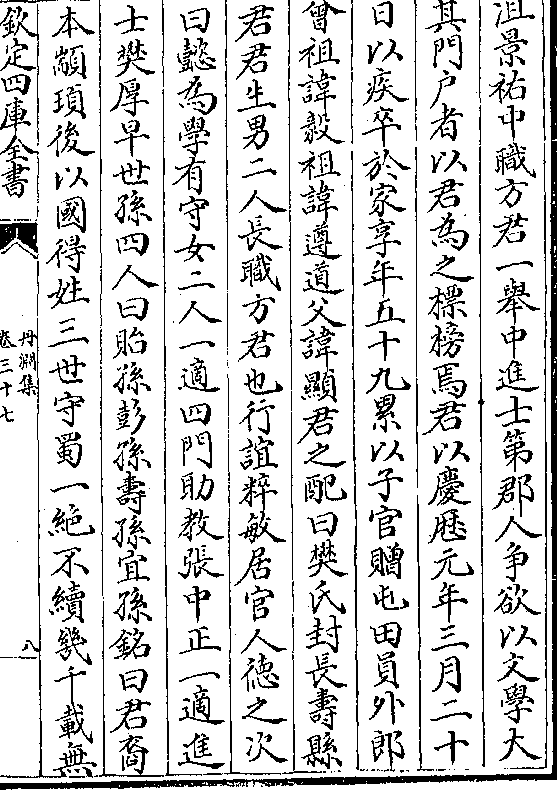 沮景祐中職方君一舉中進士第郡人争欲以文學大
其門户者以君為之標榜焉君以慶厯元年三月二十
日以疾卒於家享年五十九累以子官贈屯田員外郎
曾祖諱毅祖諱遵道父諱顯君之配曰樊氏封長壽縣
君君生男二人長職方君也行誼粹敏居官人德之次
曰懿為學有守女二人一適四門助教張中正一適進
士樊厚早世孫四人曰貽孫彭孫壽孫宜孫銘曰君裔
本顓頊後以國得姓三世守蜀一絶不續幾千載無
欽定四庫全書
丹淵集
卷三十七
八